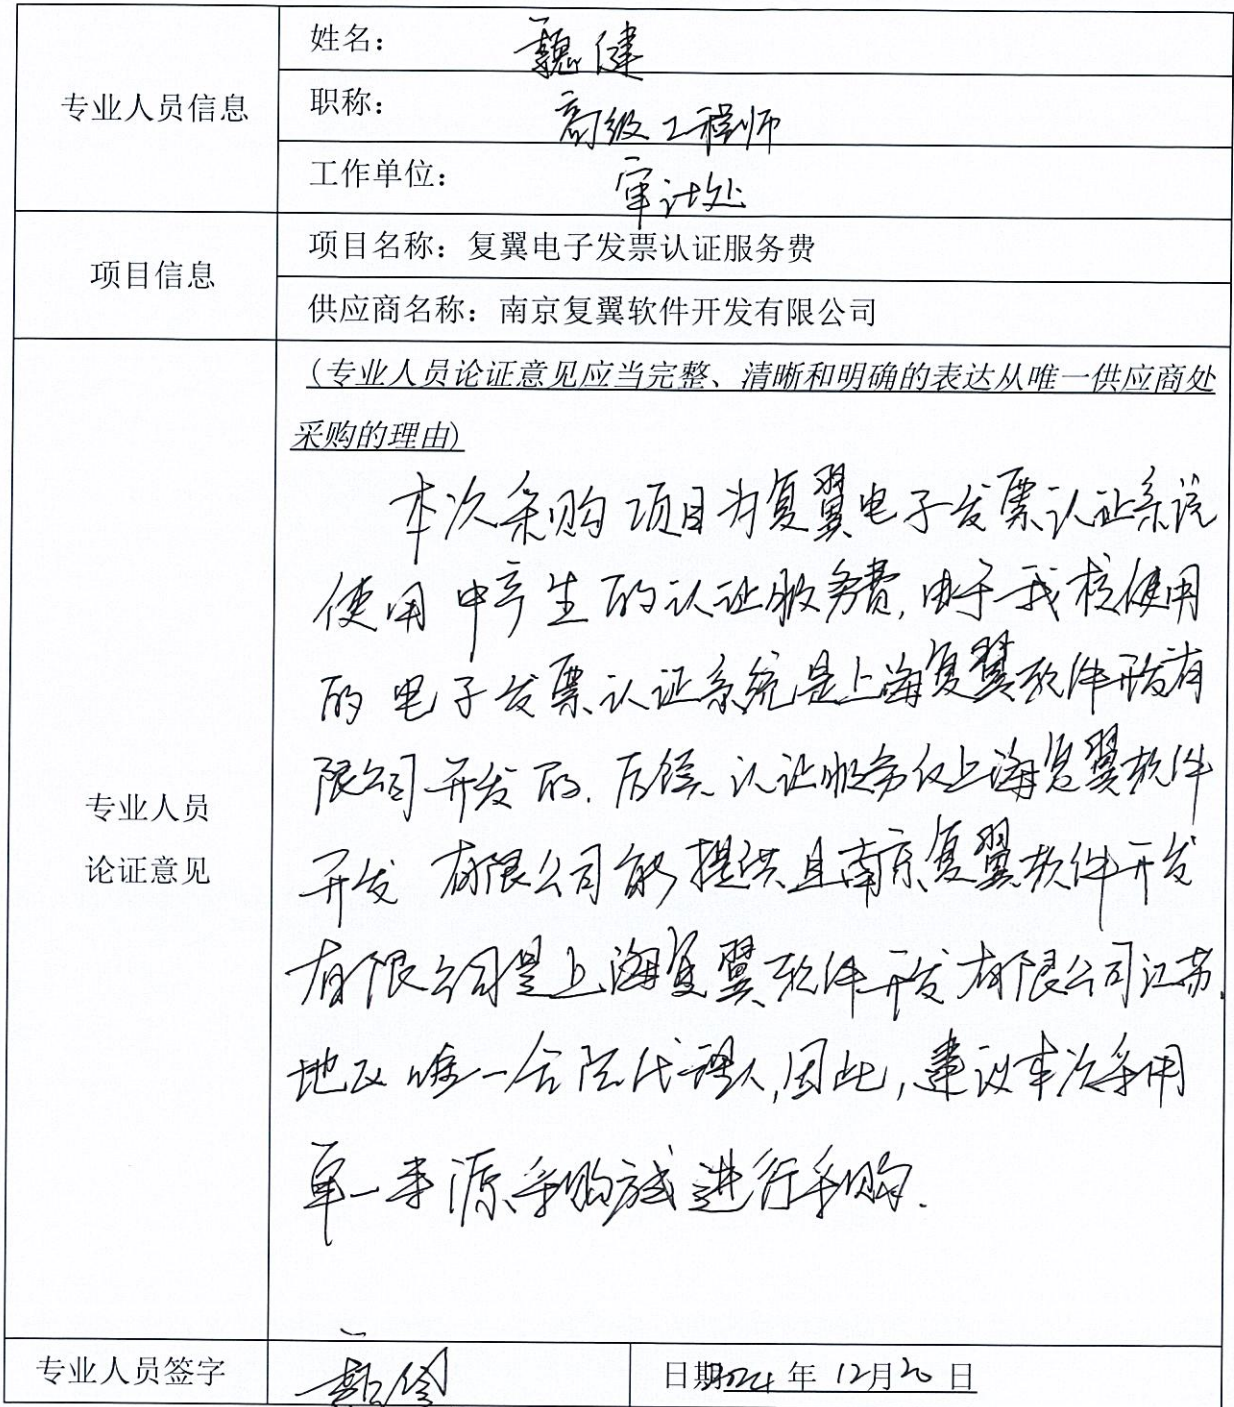 专业人员信息
姓名： 魏健
职称： 高级工程师
工作单位： 审计处
项目信息
项目名称：复翼电子发票认证服务费
供应商名称：南京复翼软件开发有限公司
专业人员
论证意见
（专业人员论证意见应当完整、清晰和明确的表达从唯一供应商处
采购的理由）
本次采购项目为复翼电子发票认证系统
使用中产生的认证服务费，由于我校使用
的电子发票认证系统是上海复翼软件开发有
限公司开发的．后续认证服务仅上海复翼软件
开发有限公司能提供且南京复翼软件开发
有限公司是上海复翼软件开发有限公司江苏
地区唯一合法代理人，因此，建议本次采用
单一来源采购方式进行采购．
专业人员签字
日期2024年12月20日